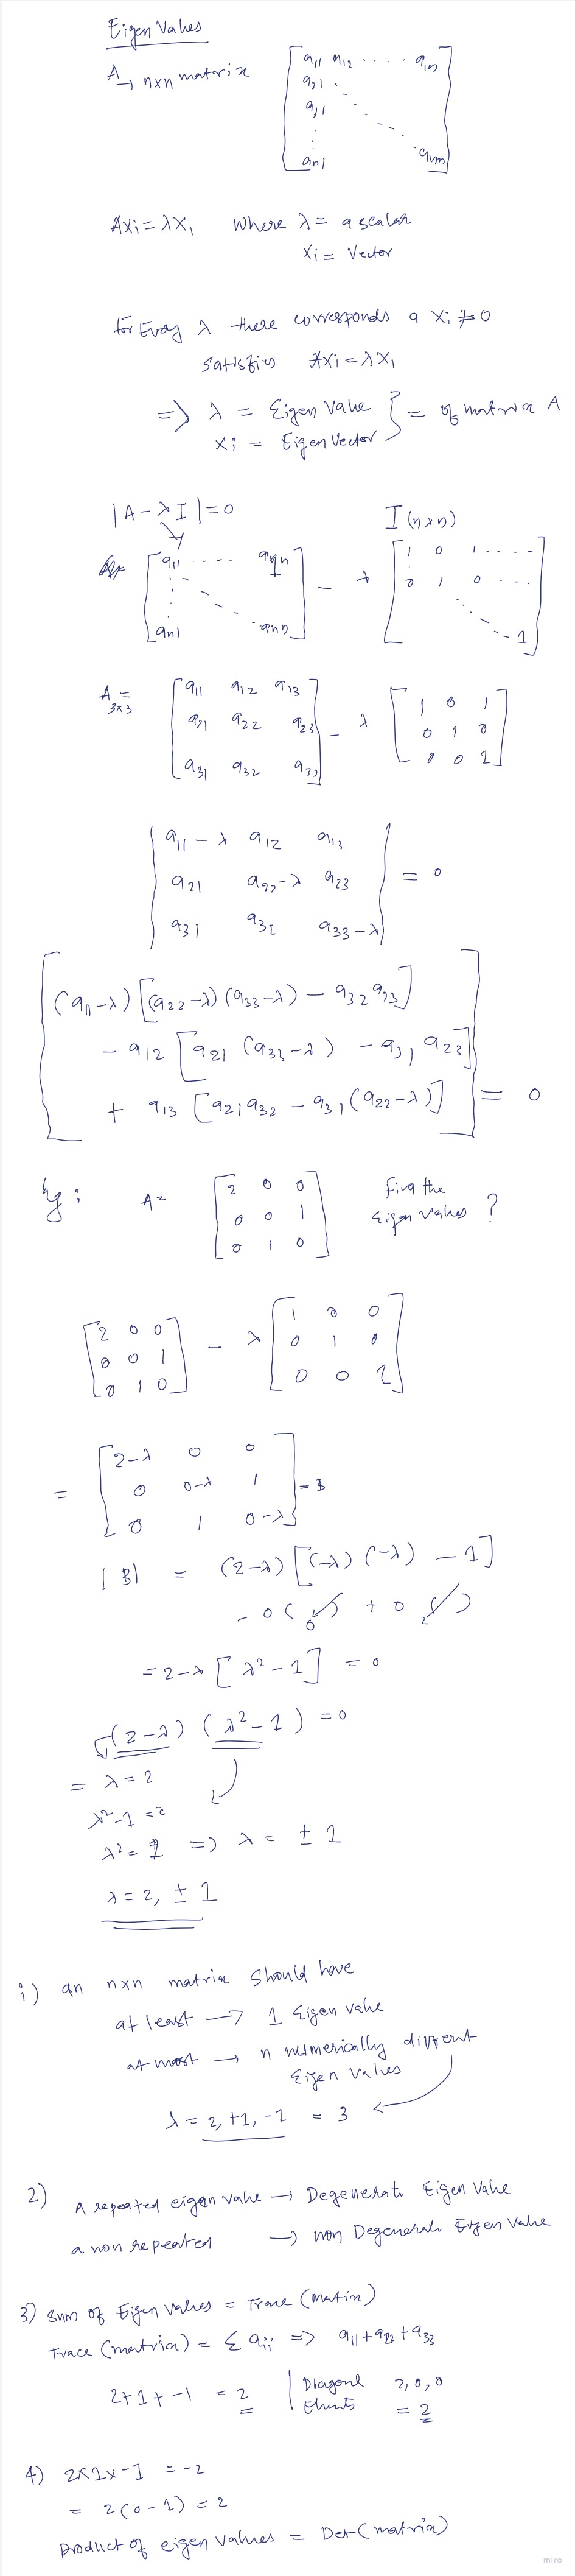 Eigen Values
A → n×n matrix
[ a11 n12 . . . . a1n
a21 .
a31
:
an1 . ann ]
AXi = λX1 Where λ = a scalar
Xi = Vector
for Every λ there corresponds a Xi ≠ 0
Satisfies AXi = λX1
=> λ = Eigen Value
Xi = Eigen Vector } = of matrix A
|A - λI| = 0 I (n×n)
[ a11 . . . . a1n
:
an1 . ann ] - λ [ 1 0 1 . . . .
0 1 0 . . .
. . 1 ]
A 3×3 = [ a11 a12 a13
a21 a22 a23
a31 a32 a33 ] - λ [ 1 0 1
0 1 0
0 0 1 ]
| a11 - λ a12 a13
a21 a22 - λ a23
a31 a32 a33 - λ | = 0
[ (a11 - λ) [(a22 - λ) (a33 - λ) - a32 a23]
- a12 [ a21 (a33 - λ) - a31 a23 ]
+ a13 [ a21 a32 - a31 (a22 - λ) ] ] = 0
Eg : A = [ 2 0 0
0 0 1
0 1 0 ] Find the
Eigen Values ?
[ 2 0 0
0 0 1
0 1 0 ] - λ [ 1 0 0
0 1 0
0 0 1 ]
= [ 2-λ 0 0
0 0-λ 1
0 1 0-λ ] = B
|B| = (2-λ) [(-λ) (-λ) - 1]
- 0 ( ) + 0 ( )
0
= 2-λ [ λ² - 1 ] = 0
(2-λ) (λ² - 1) = 0
= λ = 2
λ² - 1 = 0
λ² = 1 => λ = ± 1
λ = 2, ± 1
1) an n×n matrix Should have
at least → 1 Eigen value
at most → n numerically different
Eigen Values
λ = 2, +1, -1 = 3
2) A repeated eigen value → Degenerate Eigen Value
a non repeated → non Degenerate Eigen Value
3) Sum of Eigen Values = Trace (Matrix)
Trace (matrix) = Σ aii => a11 + a22 + a33
2 + 1 + -1 = 2 | Diagonal 2, 0, 0
Elements = 2
4) 2×1×-1 = -2
= 2 (0 - 1) = 2
Product of eigen values = Det (matrix)
miro